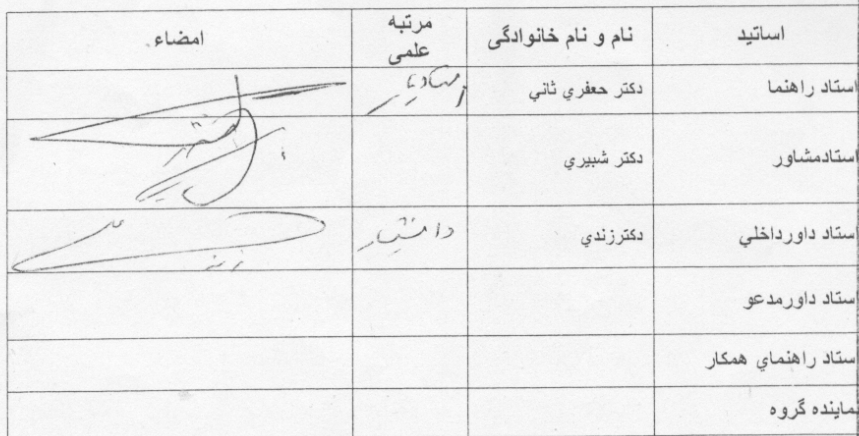 اساتيد	نام و نام خانوادگی	مرتبه علمی	امضاء
استاد راهنما	دكتر حعفري ثاني	استاديار
استادمشاور	دكتر شبيري
استاد داورداخلي	دكترزندي	دانشيار
استاد داورمدعو
ستاد راهنماي همكار
نماينده گروه